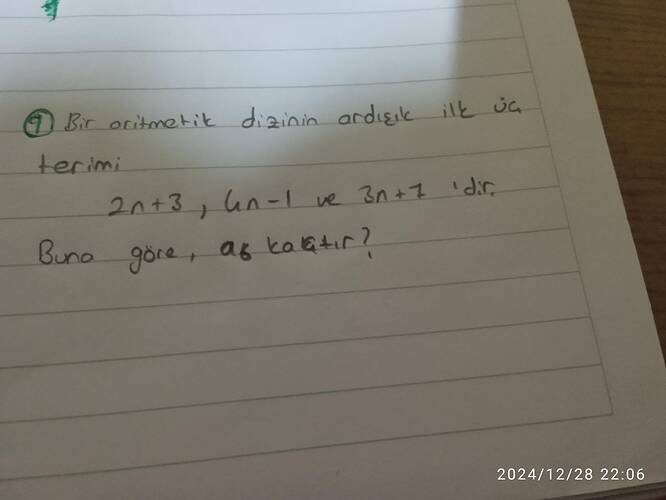 9 Bir aritmetik dizinin ardışık ilk üç
terimi
2n+3, 4n-1 ve 3n+7 'dir.
Buna göre, a6 kaçtır?
2024/12/28 22:06